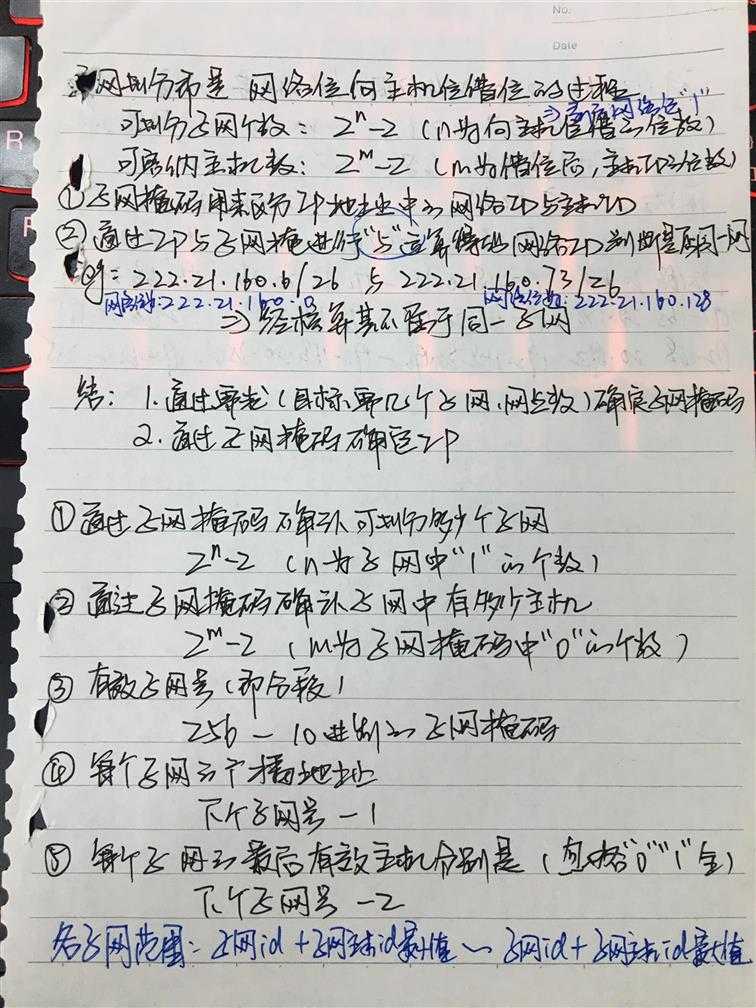 No.
Date
子网划分布是 网络位向主机位借位的过程
⇒ 表示网络位"1"
可划分子网个数: 2ⁿ-2 (n为向主机位借的位数)
可容纳主机数: 2ᵐ-2 (m为借位后,主机ID的位数)
① 子网掩码用来区分IP地址中的网络ID与主机ID
② 通过IP与子网掩进行"与"运算得出网络ID判断是否同一网
eg: 222.21.160.6/26 与 222.21.160.73/26
网络位数:222.21.160.0 网络位数:222.21.160.128
⇒ 经核算其不属于同一子网
结: 1.通过要求(目标、要几个子网、网点数)确定子网掩码
2.通过子网掩码确定IP
① 通过子网掩码确认可划分多少个子网
2ⁿ-2 (n为子网中"1"的个数)
② 通过子网掩码确认子网中有多少主机
2ᵐ-2 (m为子网掩码中"0"的个数)
③ 有效子网号(即分段)
256 - 10进制的子网掩码
④ 每个子网的广播地址
下个子网号 -1
⑤ 每个子网的最后有效主机分别是 ("0""1"全)
下个子网号 -2
各子网范围: 子网id + 子网主机id最小值 ~ 子网id + 子网主机id最大值
R